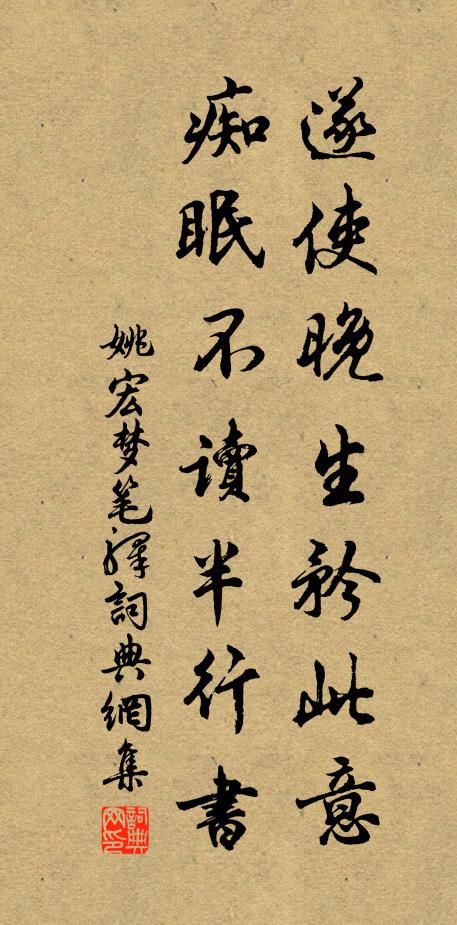 遂使晚生矜此意
痴眠不讀半行書
姚宏梦笔譯詞典網集
詞典网印